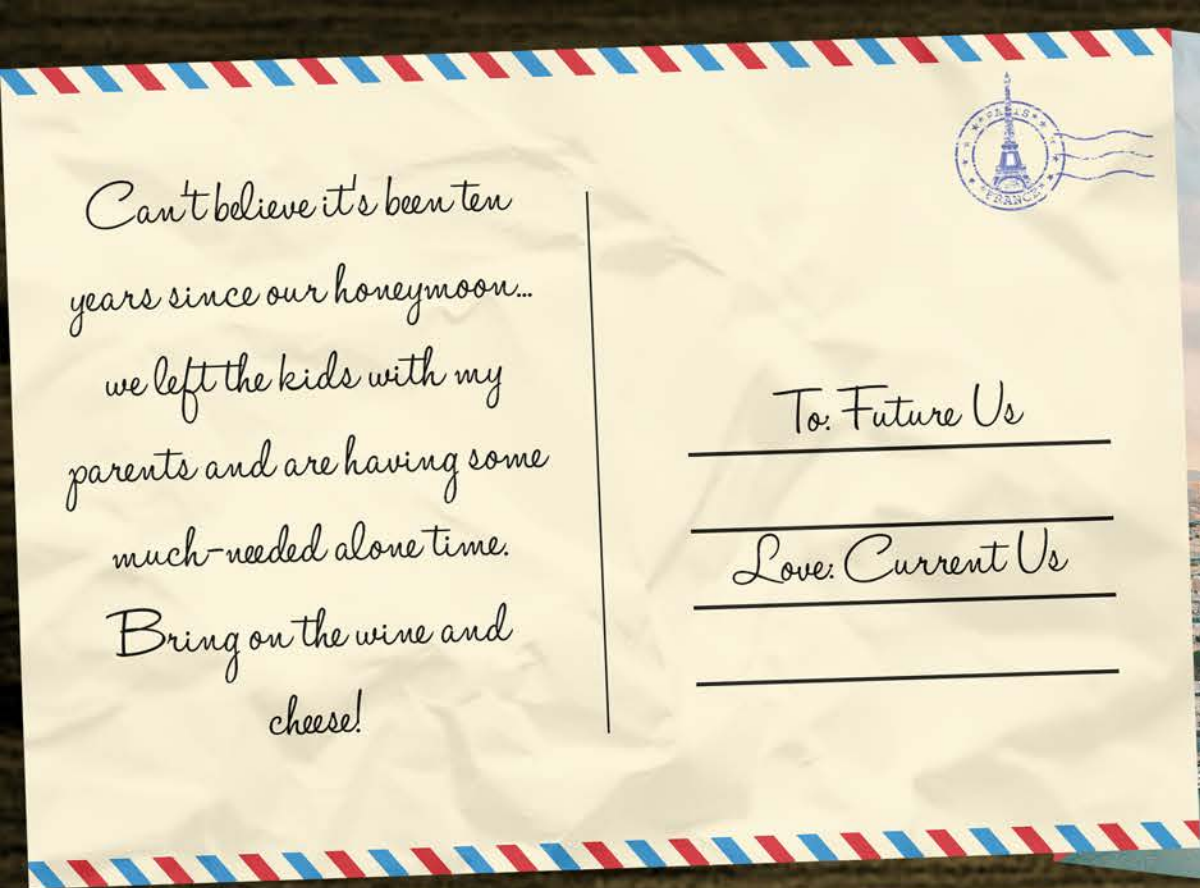 Can't believe it's been ten
years since our honeymoon...
we left the kids with my
parents and are having some
much-needed alone time.
Bring on the wine and
cheese!
PARIS
FRANCE
To: Future Us
Love: Current Us